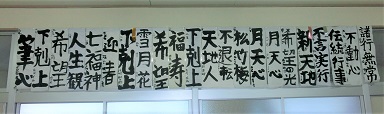 諸行無常
不動心
伝統行事
不言実行
新天地
希望の光
月天心
月天心
松竹梅
不退転
天地人
希望
福寿
下剋上
雪月花
下剋上
迎春
七福神
人生観
希望
下剋上
筆心